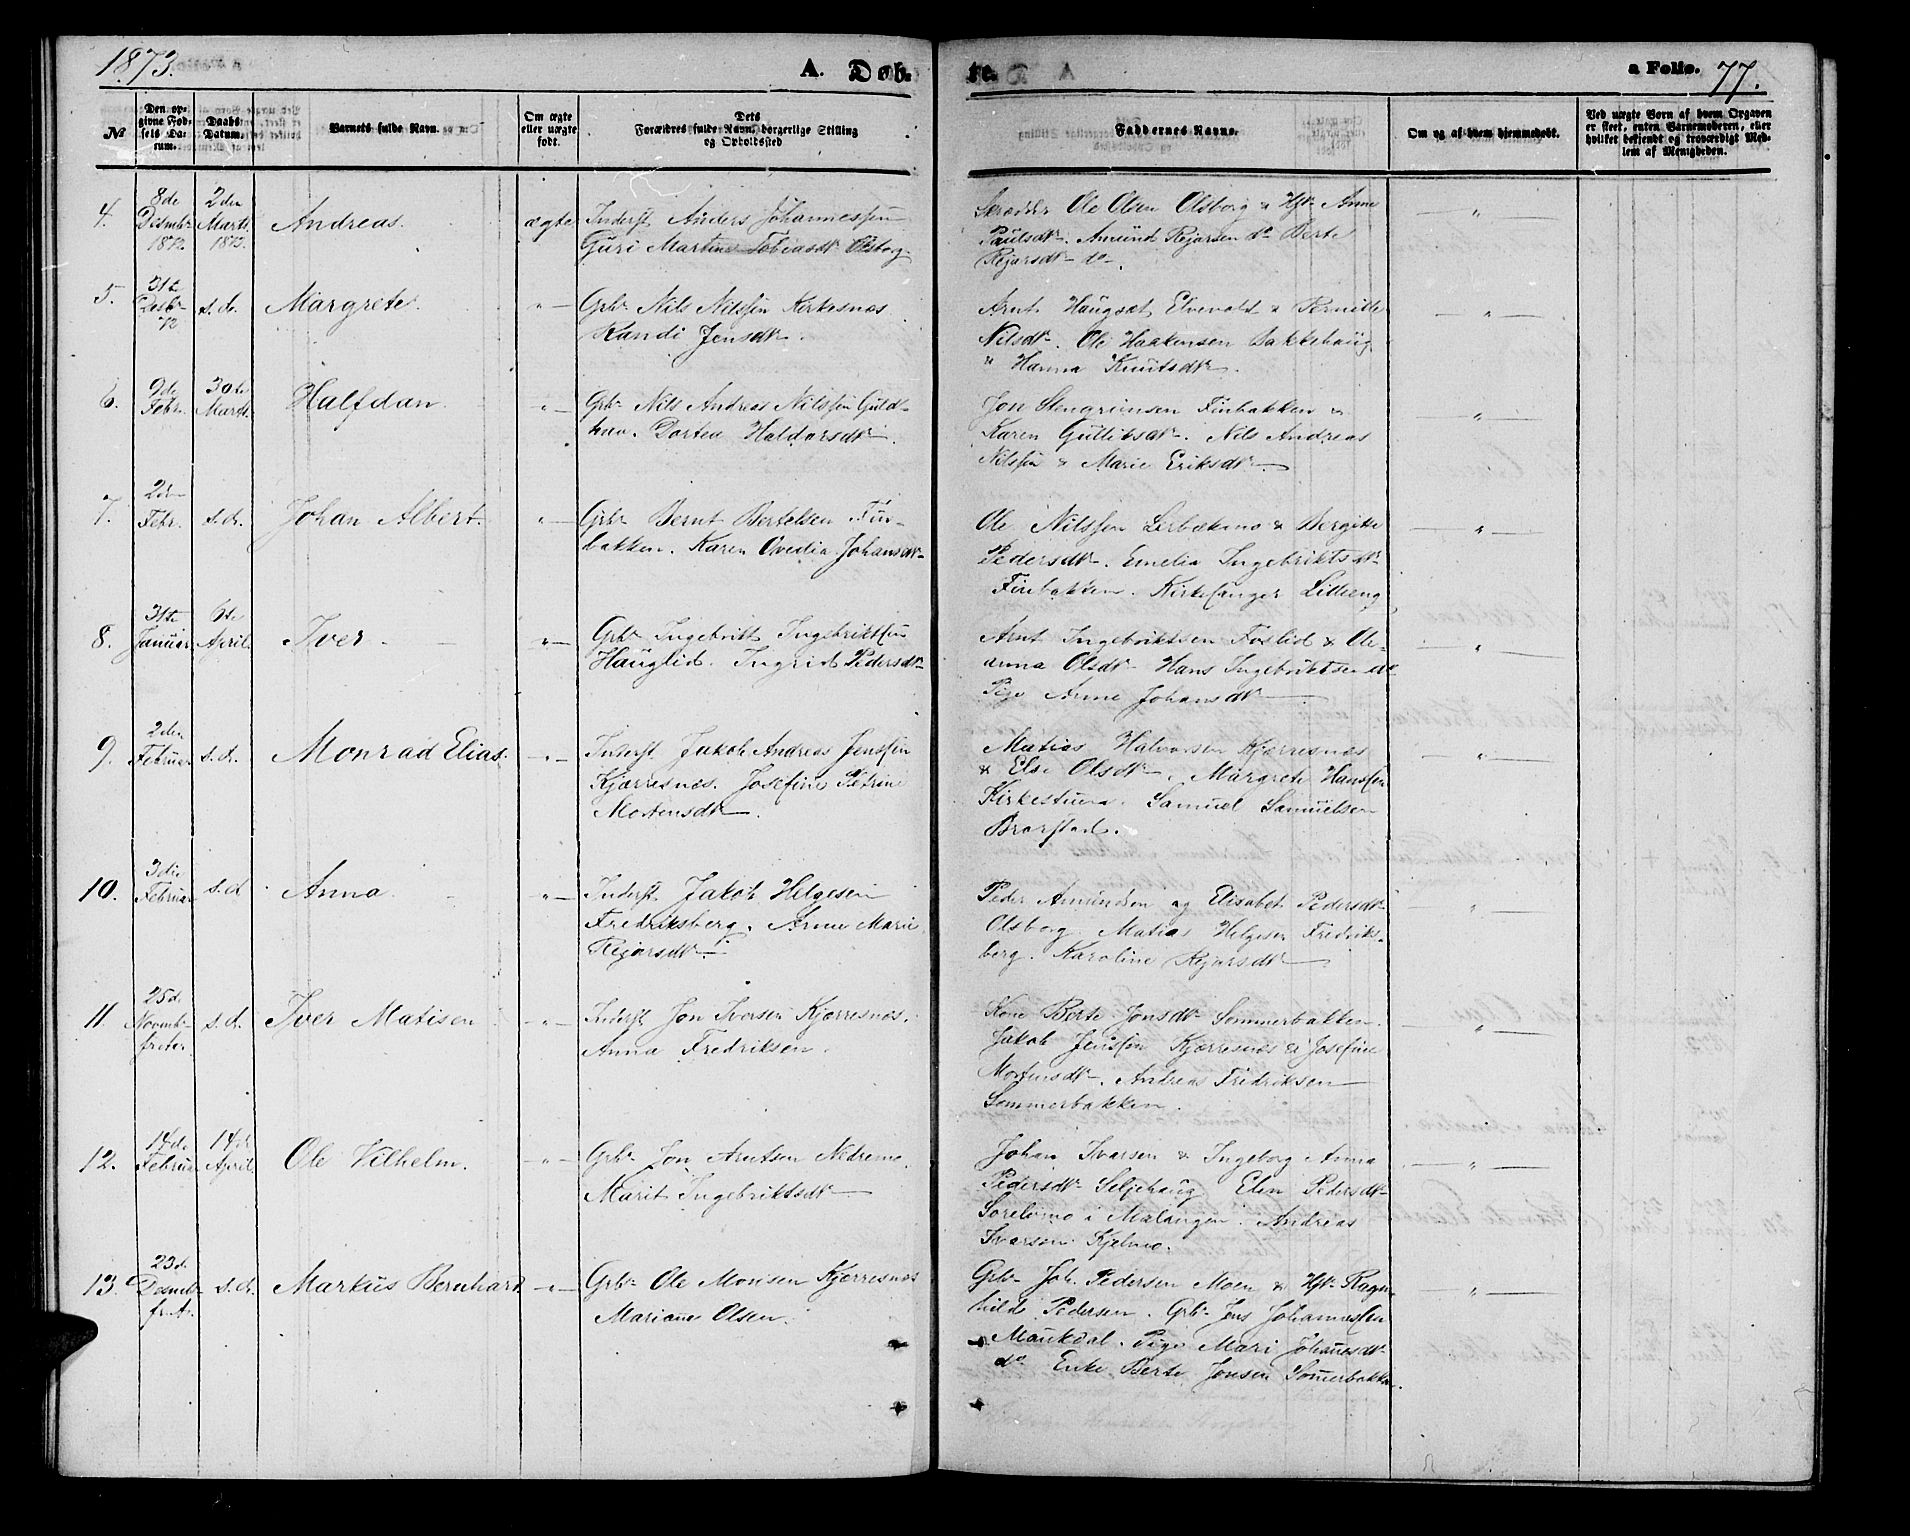 1873. A. Dåb. te. a Folio. 77.
№ Den opgivne Fødsels Datum. Daabs Datum. Barnets fulde Navn. Om ægte eller uægte født. Dets Forældres fulde Navn, borgerlige Stilling og Opholdssted Faddernes Navne. Om og af hvem hjemmedøbt. Ved uægte Børn af hvem Opgaven er skeet, enten Barnemoderen, eller hvilket bekjendt og troværdigt Medlem af Menigheden.
4. 8de Desmbr 1872 2den Marts 1873. Andreas. ægte Inderst Anders Johannessen
Guri Martine Tobiasdtr Olsborg.
Skrædder Ole Olsen Olsborg & Hst. Anne
Paulsdtr. Amund Rejarsen do Berte
Rejarsdtr do.
5. 31te Desbr 72 s.d. Margrete. " Grbr Nils Nilssen Kirkesnes
Randi Jensdtr.
Arnt Haugset Elvevold & Pernille
Nilsdtr. Ole Haakensen Bakkehaug
& Hanna Knutsdtr.
6. 9de Febr. 30te Marts. Halfdan. " Grbr Nils Andreas Nilssen Guldhav. Dortea Haldorsdtr.
Jon Stengrimsen Finbakken &
Karen Gulliksdtr. Nils Andreas
Nilssen & Marie Eriksdtr
7. 2den Febr. s.d. Johan Albert. " Grbr Bernt Bertelsen Finbakken. Karen Ovedia Johansdtr
Ole Nilssen Lerbækmo & Bergitte
Pedersdtr. Emelia Ingebriktsdtr
Finbakken. Kirkesanger Litleng
8. 31te Januar. 6te April. Iver " Grbr Ingebrikt Ingebriktsen
Hauglid. Ingrid Pedersdtr
Arnt Ingebriktsen Foslid & Oleanna Olsdtr Hans Ingebriktsen do
Pige Anne Johansdtr
9. 2den Februar s.d. Monrad Elias. " Inderst Jakob Andreas Jenssen
Kjærresnes. Josefine Petrine
Mortensdtr.
Matias Halvorsen Kjærresnes
& Else Olsdtr. Margrete Hanssen
Kirkestuen. Samuel Samuelsen
Brarstad.
10. 3die Februar s.d. Anna " Inderst Jakob Helgesen
Fredriksberg. Anne Marie
Rejarsdtr
Peder Amundsen og Elisabet Pedersdtr
Olsborg. Matias Helgesen Fredriksberg. Karoline Rejarsdtr
11. 25de Novembr s.d. Iver Matisen " Inderst Jon Iversen Kjærresnes.
Anna Fredriksen.
Kone Berte Jonsdtr Sommerbakken.
Jakob Jenssen Kjærresnes & Josefine
Mortensdtr. Andreas Fredriksen
Sommerbakken.
12. 14de Februar 14de April Ole Vilhelm. " Grbr Jon Arntsen Nedremo.
Marit Ingebriktsdtr
Johan Ivarsen & Ingeborg Anna
Pedersdtr Seljehaug Elen Pedersdtr
Sørelvmo i Malangen. Andreas
Ivarsen Kjelmo.
13. 23de Desmbr f.A. s.d. Markus Bernhard " Grbr Ole Monsen Kjærresnes
Mariane Olsen.
Grbr Joh. Pedersen Moen & Hst. Ragnhilde Pedersen. Grbr Jens Johannessen
Maukdal. Pige Mari Johanesdtr
do Enke Berte Jonsen Sommerbakken.